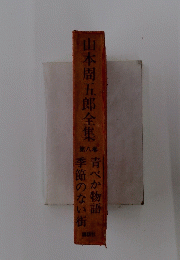 山本周五郎全集
第八巻
青べか物語
季節のない街